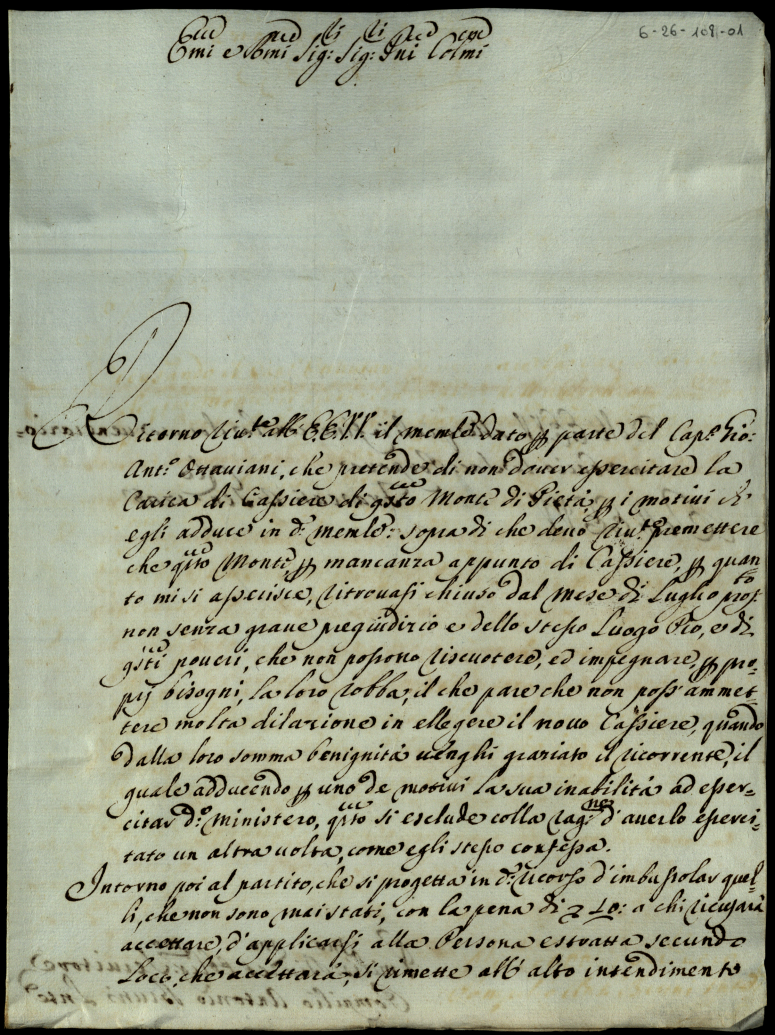 6-26-108-01
Emi e Rmi Sig: Sig: Pni Colmi
Ritorno Riv.te all' EE.VV. il memle. dato p parte del Cap.o Gio:
Ant.o Ottaviani, che pretende di non dover essercitare la
Carica di Cassiere di qsto Monte di Pietà, p i motivi ch'
egli adduce in d.o memle: sopra di che devo Riv.te premettere
che qsto Monte, p mancanza appunto di Cassiere, p quan-
to mi si asserisce, ritrovasi chiuso dal mese di Luglio pros.to
non senza grave pregiudizio e dello stesso Luogo Pio, e di
qsti poveri, che non possono riscuotere, ed impegnare, p pro-
pij bisogni, la loro robba; il che pare che non poss'ammet-
tere molta dilazione in ellegere il novo Cassiere, quando
dalla loro somma benignità venghi graziato il ricorrente, il
quale adducendo p uno de motivi la sua inabilità ad esser-
citar d.o ministero, qsto si esclude colla rag.ne d'averlo esserci-
tato un altra volta, come egli stesso confessa.
Intorno poi al partito, che si progetta in d.o ricorso d'imbussolar quel-
li, che non sono mai stati, con la pena di 10: a chi ricuserà
accettare, d'applicarsi alla Persona estratta secundo
Loco, che accettarà, si rimette all' alto intendimento